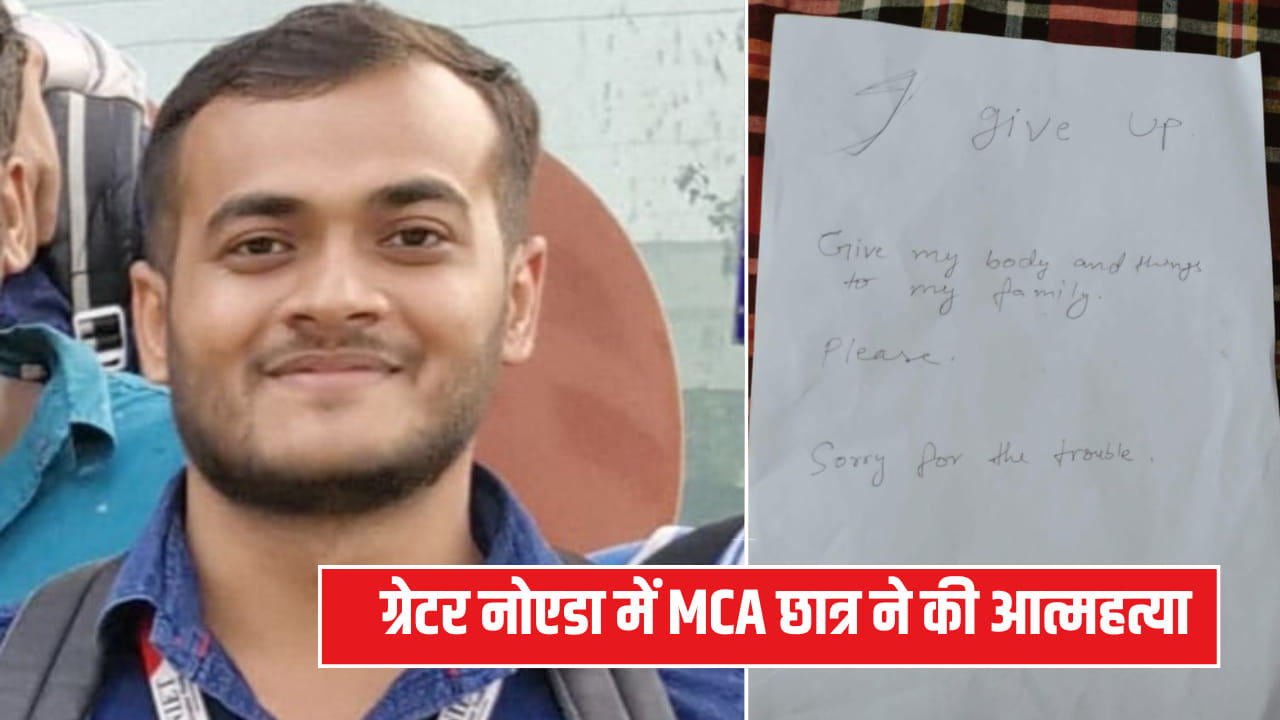 I give up.
Give my body and things
to my family.
Please.
Sorry for the trouble.
ग्रेटर नोएडा में MCA छात्र ने की आत्महत्या